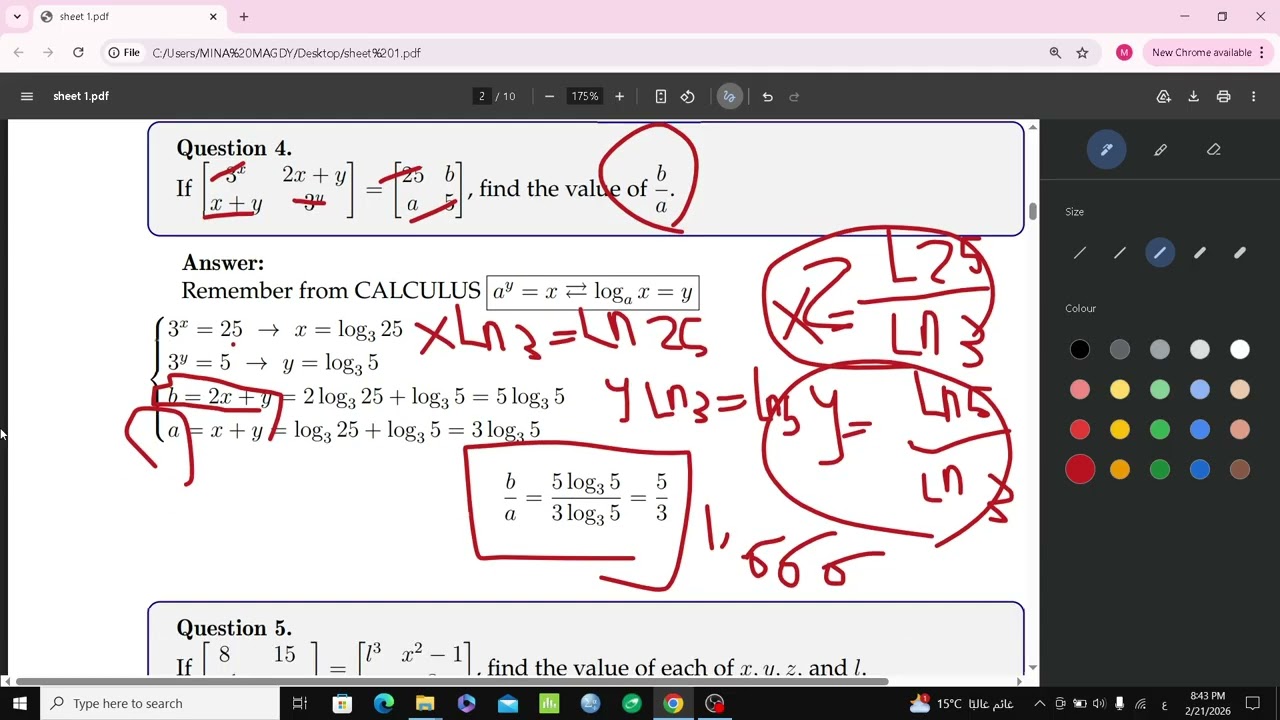 sheet 1.pdf
File C:/Users/MINA%20MAGDY/Desktop/sheet%201.pdf M New Chrome available
sheet 1.pdf 2 / 10 175%
Question 4.
If [3^x 2x + y; x + y 3^y] = [25 b; a 5], find the value of b/a.
Answer:
Remember from CALCULUS a^y = x ⇄ log_a x = y
3^x = 25 → x = log_3 25
3^y = 5 → y = log_3 5
b = 2x + y = 2 log_3 25 + log_3 5 = 5 log_3 5
a = x + y = log_3 25 + log_3 5 = 3 log_3 5
b/a = 5 log_3 5 / 3 log_3 5 = 5/3
x Ln 3 = Ln 25
y Ln 3 = Ln 5
Ln 5
Ln 3
1,666
Question 5.
If [8 15 = [l^3 x^2 − 1], find the value of each of x, y, z, and l.
Size
Colour
Type here to search
15°C غائم غالبًا
ع
8:43 PM
2/21/2026